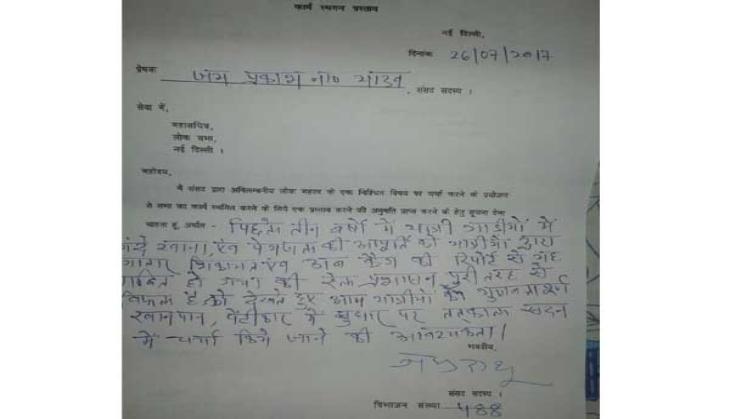 कार्य स्थगन प्रस्ताव
नई दिल्ली,
दिनांक 26/07/2017
प्रेषकः जय प्रकाश ना० यादव
संसद सदस्य ।
सेवा में,
महासचिव,
लोक सभा,
नई दिल्ली ।
महोदय,
मैं संसद द्वारा अविलम्बनीय लोक महत्व के एक निश्चित विषय पर चर्चा करने के प्रयोजन
से सभा का कार्य स्थगित करने के लिये एक प्रस्ताव करने की अनुमति प्राप्त करने के हेतु सूचना देना
चाहता हूं, अर्थात - पिछले तीन वर्षों में यात्री गाड़ीयों में
गंदे खाना, एवं पेयजल की आपूर्ति को यात्रीयों द्वारा
लगातार शिकायत एवं अब कैग की रिपोर्ट से यह
साबित हो गया की रेल प्रशासन पुरी तरह से
विफल है को देखते हुए आम यात्रीयों को गुणवत्तापूर्ण
खानपान, पेंट्रीकार में सुधार पर तत्काल सदन
में चर्चा किये जाने की आवश्यकता।
भवदीय,
संसद सदस्य ।
विभाजन संख्या 488